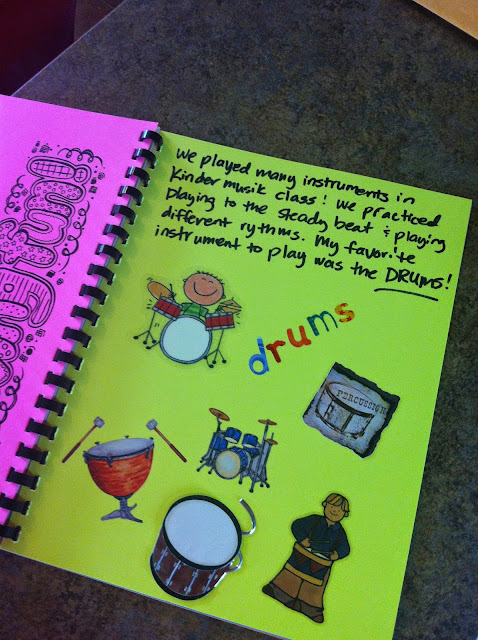 We played many instruments in
Kindermusik class! We practiced
playing to the steady beat & playing
different rythms. My favorite
instrument to play was the DRUMS!
drums
PERCUSSION